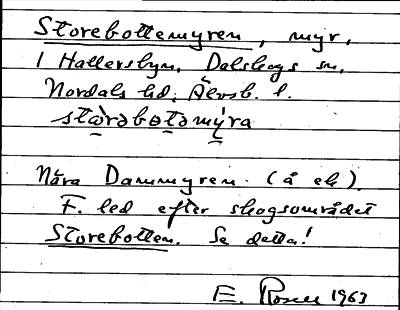 Storebottemyren, myr,
i Hallersbyn, Dalskogs sn,
Nordals hd, Älvsb. l.
stὼrəbɵtəmý̀ra
Nära Dammyren. (å ek).
F. led efter skogsområdet
Storebotten. Se detta!
E. Rosen 1963